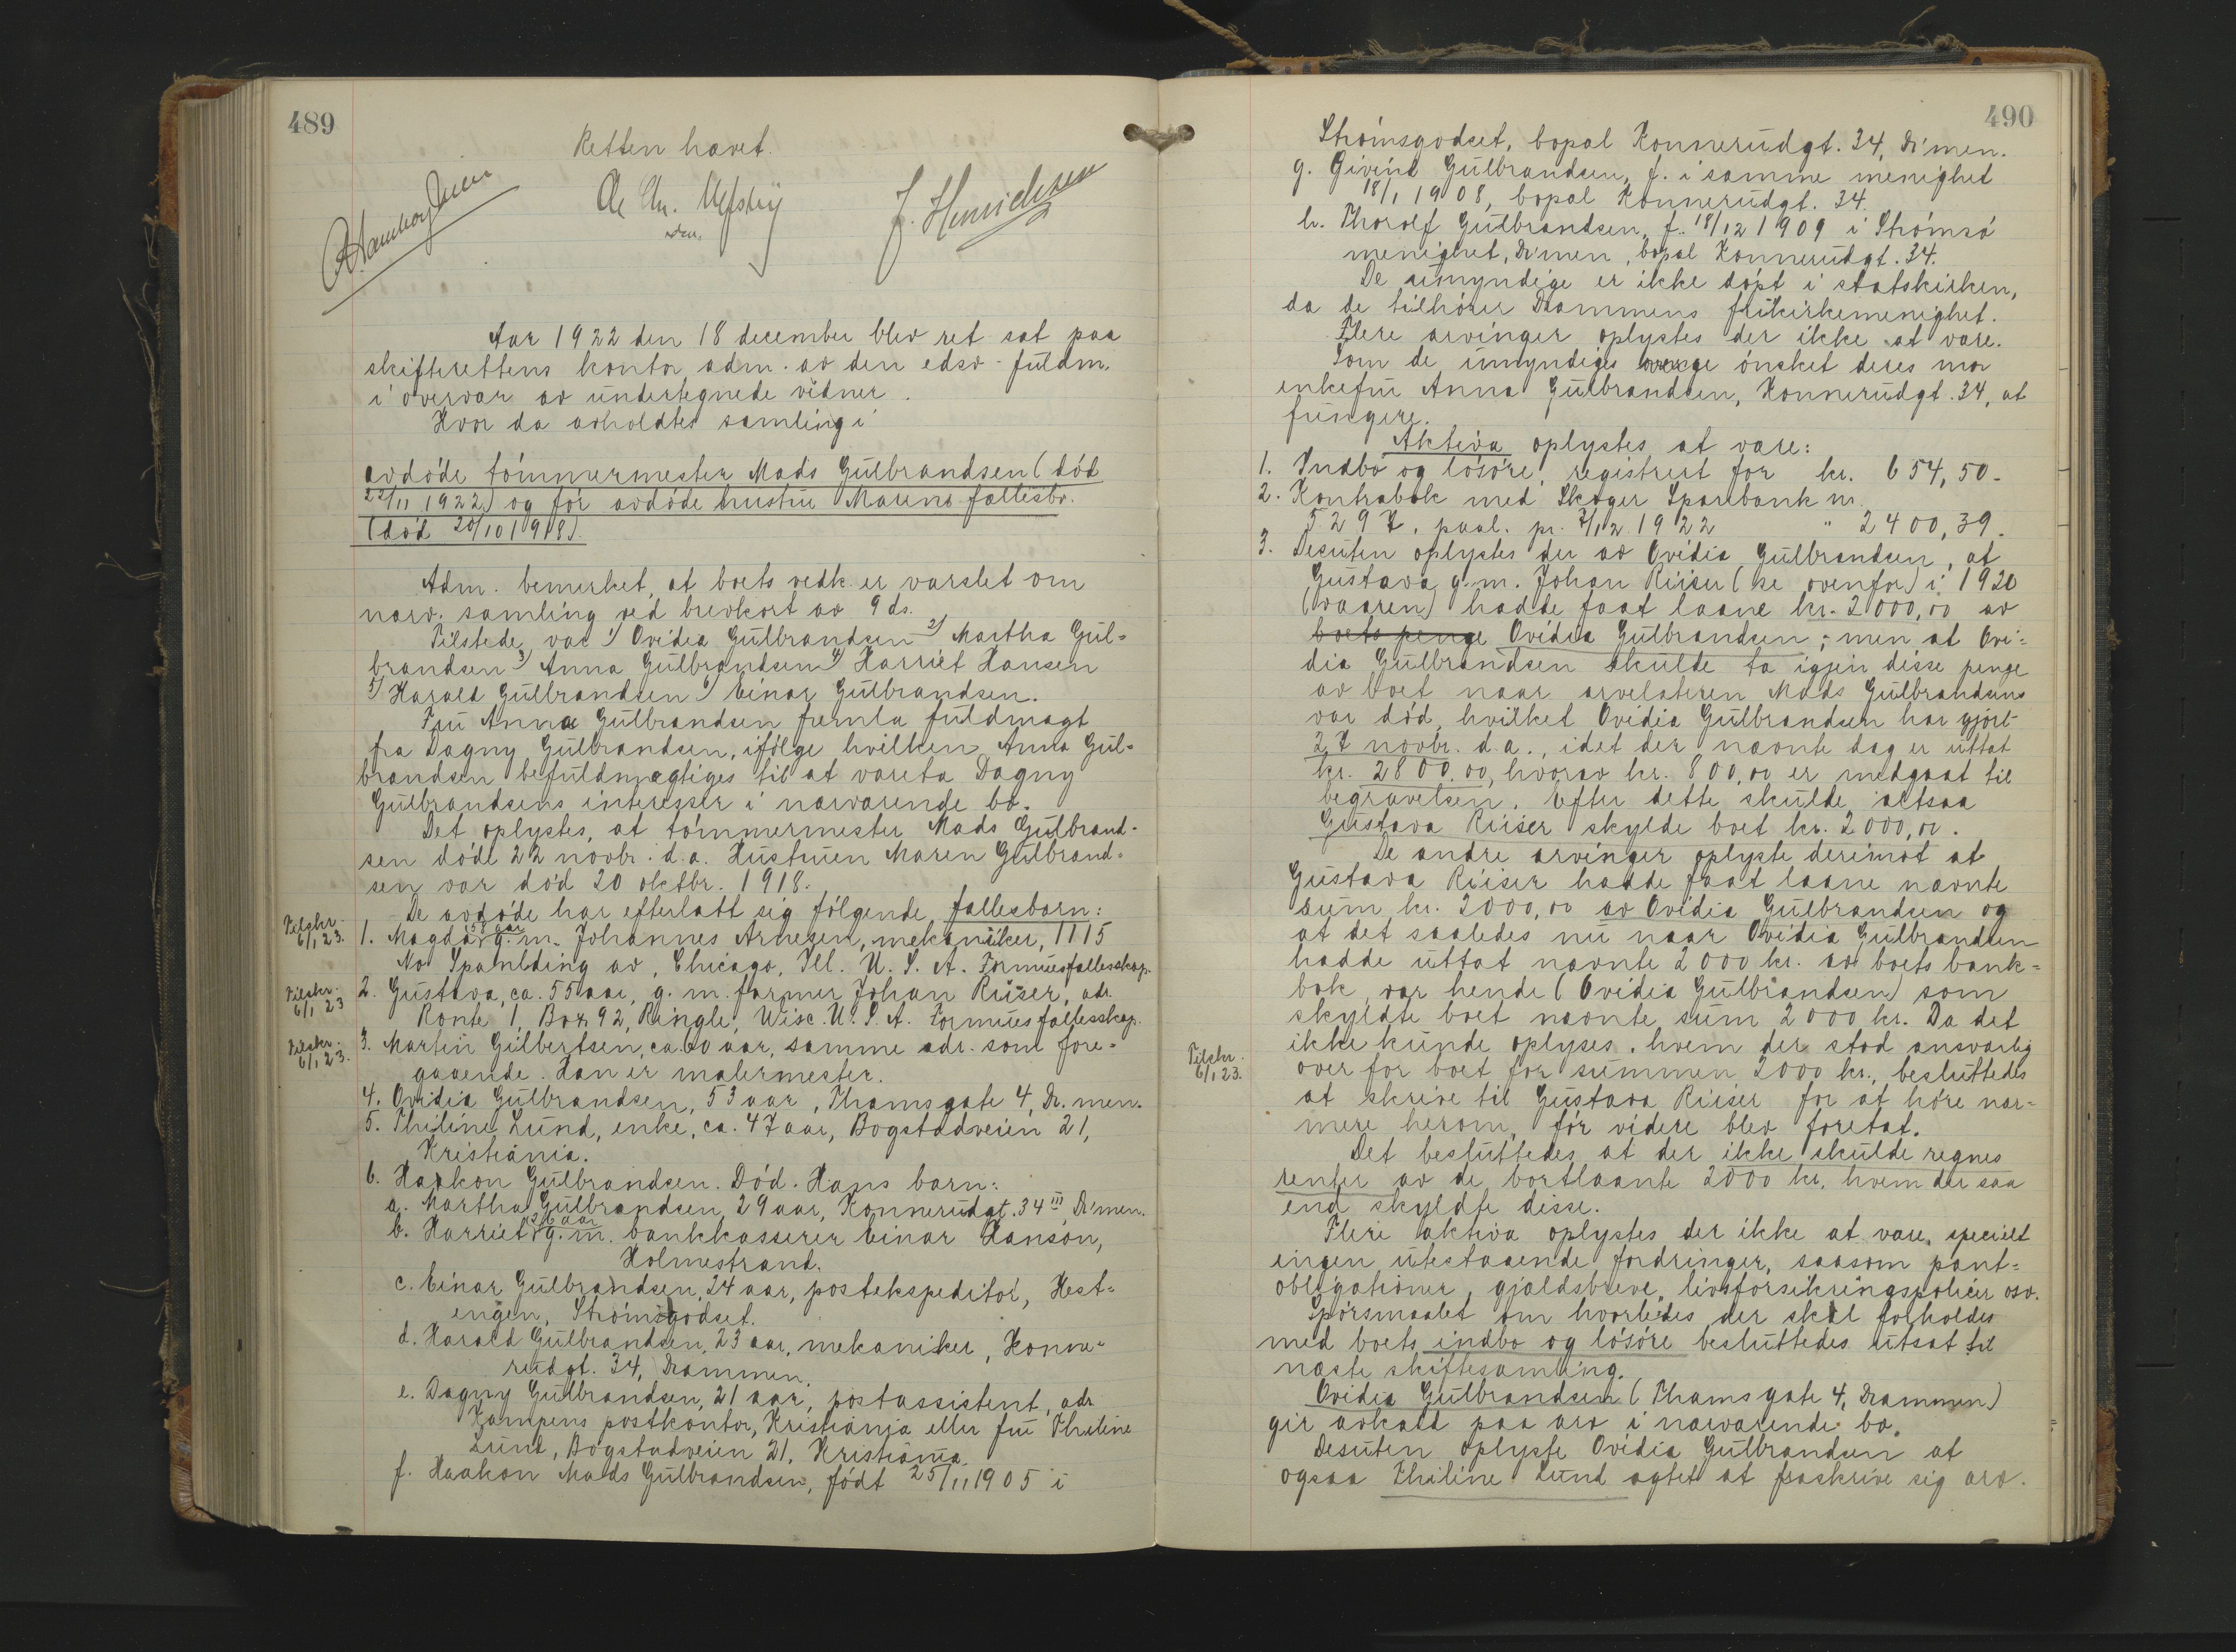 489
Retten hævet.
J. Henrichsen
Aar 1922 den 18 december blev ret sat paa
skifterettens kontor adm. av den edsv. fuldm.
i overvær av undertegnede vidner.
Hvor da avholdtes samling i
avdøde tømmermester Mads Gulbrandsen (død
22/11 1922) og før avdøde hustru Marens fællesbo.
(død 20/10 1918).
Adm. bemerket, at boets vedk. er varslet om
nærv. samling ved brevkort av 9 ds.
Tilstede var 1) Ovidia Gulbrandsen 2) Martha Gul=
brandsen 3) Anna Gulbrandsen 4) Harriet Hansen
5) Harald Gulbrandsen 6) Einar Gulbrandsen.
Fru Anna Gulbrandsen fremla fuldmagt
fra Dagny Gulbrandsen, ifølge hvilken Anna Gul=
brandsen befuldmægtiges til at vareta Dagny
Gulbrandsens interesser i nærværende bo.
Det oplystes, at tømmermester Mads Gulbrand-
sen døde 22 novbr. d.a. Hustruen Maren Gulbrand=
sen var død 20 oktbr. 1918.
De avdøde har efterlatt sig følgende fællesbarn:
Tilskr. 6/1 23. 1. Magda, 58 aar g. m. Johannes Arnesen, mekaniker, 1115
No Spaulding av, Chicago, Ill. U. S. A. Formuesfællesskap.
Tilskr. 6/1 23 2. Gustava, ca. 55 aar, g. m. farmer Johan Riiser, adr.
Ronte 1, Box 92, Ringle, Wisc. U. S. A. Formuesfællesskap.
Tilskr. 6/1 23. 3. Martin Gilbertsen, ca. 60 aar, samme adr. som fore=
gaaende. Han er malermester.
4. Ovidia Gulbrandsen, 53 aar, Thamsgate 4, Dr.men.
5. Thiline Lund, enke, ca. 47 aar, Bogstadveien 21,
Kristiania.
6. Haakon Gulbrandsen. Død. Hans barn:
a. Martha Gulbrandsen, 29 aar, Konnerudgt. 34 III, Dr'men.
b. Harriet, 26 aar g. m. bankkasserer Einar Hanson,
Holmestrand.
c. Einar Gulbrandsen, 24 aar, postekspeditør, Hest=
engen, Strømsgodset.
d. Harald Gulbrandsen, 23 aar, mekaniker, Konne=
rudgt. 34, Drammen.
e. Dagny Gulbrandsen, 21 aar, postassistent, adr
Kampens postkontor, Kristiania eller fru Thiline
Lund, Bogstadveien 21, Kristiania.
f. Haakon Mads Gulbrandsen, født 25/11 1905 i
490
Strømsgodset, bopæl Konnerudgt. 34, Dr'men.
g. Øivind Gulbrandsen, f. i samme menighet
18/1 1908, bopæl Konnerudgt. 34.
h. Thorolf Gulbrandsen, f. 18/12 1909 i Strømsø
menighet, Dr'men, bopæl Konnerudgt. 34.
De umyndige er ikke døpt i statskirken,
da de tilhører Drammens frikirkemenighet.
Flere arvinger oplystes der ikke at være.
Som de umyndiges værge ønsket deres mor
enkefru Anna Gulbrandsen, Konnerudgt. 34, at
fungere.
Aktiva oplystes at være:
1. Indbo og løsøre, registrert for kr. 654,50.
2. Kontrabok med Skoger Sparebank nr.
5297, paal. pr. 7/12 1922 " 2400,39.
3. Desuten oplystes der av Ovidia Gulbrandsen, at
Gustava g. m. Johan Riiser (se ovenfor) i 1920
(vaaren) hadde faat laane kr. 2000,00 av
boets penge Ovidia Gulbrandsen; men at Ovi=
dia Gulbrandsen skulde ta igjen disse penge
av boet naar arvelateren Mads Gulbrandsens
var død, hvilket Ovidia Gulbrandsen har gjort
27 novbr. d.a., idet der nævnte dag er uttat
kr. 2800,00, hvorav kr. 800,00 er medgaat til
begravelsen. Efter dette skulde altsaa
Gustava Riiser skylde boet kr. 2000,00.
De andre arvinger oplyste derimot at
Gustava Riiser hadde faat laane nævnte
sum kr. 2000,00 av Ovidia Gulbrandsen og
at det saaledes nu naar Ovidia Gulbrandsen
hadde uttat nævnte 2000 kr. av boets bank=
bok, var hende (Ovidia Gulbrandsen) som
skyldte boet nævnte sum 2000 kr. Da det
ikke kunde oplyses, hvem der stod ansvarlig
Tilskr. 6/1 23. over for boet for summen 2000 kr., besluttedes
at skrive til Gustava Riiser for at høre nær=
mere herom, før videre blev foretat.
Det besluttedes at der ikke skulde regnes
renter av de bortlaante 2000 kr. hvem der saa
end skyldte disse.
Flere aktiva oplystes der ikke at være, specielt
ingen utestaaende fordringer, saasom pant=
obligationer, gjældsbreve, livsforsikringspolicer osv.
Spørsmaalet om hvorledes der skal forholdes
med boets indbo og løsøre besluttedes utsat til
næste skiftesamling.
Ovidia Gulbrandsen (Thamsgate 4, Drammen)
gir avkald paa arv i nærværende bo.
Desuten oplyste Ovidia Gulbrandsen at
ogsaa Thiline Lund agtet at fraskrive sig arv.